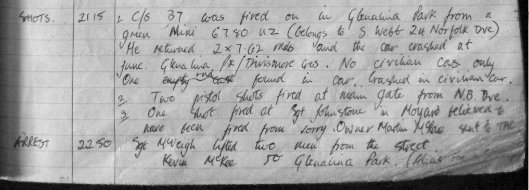 SHOTS. 2115 1 C/S 37 was fired on in Glenalina Park from a
green Mini 6780 UZ (belongs to S Webb 24 Norfolk Dve)
He returned 2 x 7.62 rnds and the car crashed at
junc. Glenalina Pk/Divismore Cres. No civilian cas only
One empty rnd case found in car. Crashed in civilian car.
2 Two pistol shots fired at main gate from N.B. Dve.
3 One shot fired at Sgt Johnstone in Moyard believed to
have been fired from lorry. Owner Martin McKee sent to
ARREST 2250 Sgt McVeigh lifted two men from the street
Kevin McKee 50 Glenalina Park.